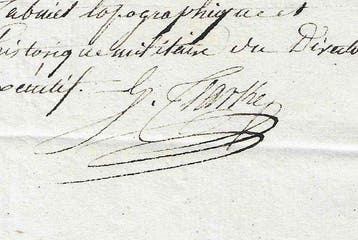 Cabinet topographique et
historique militaire du Directo
xécutif. G. Clarke